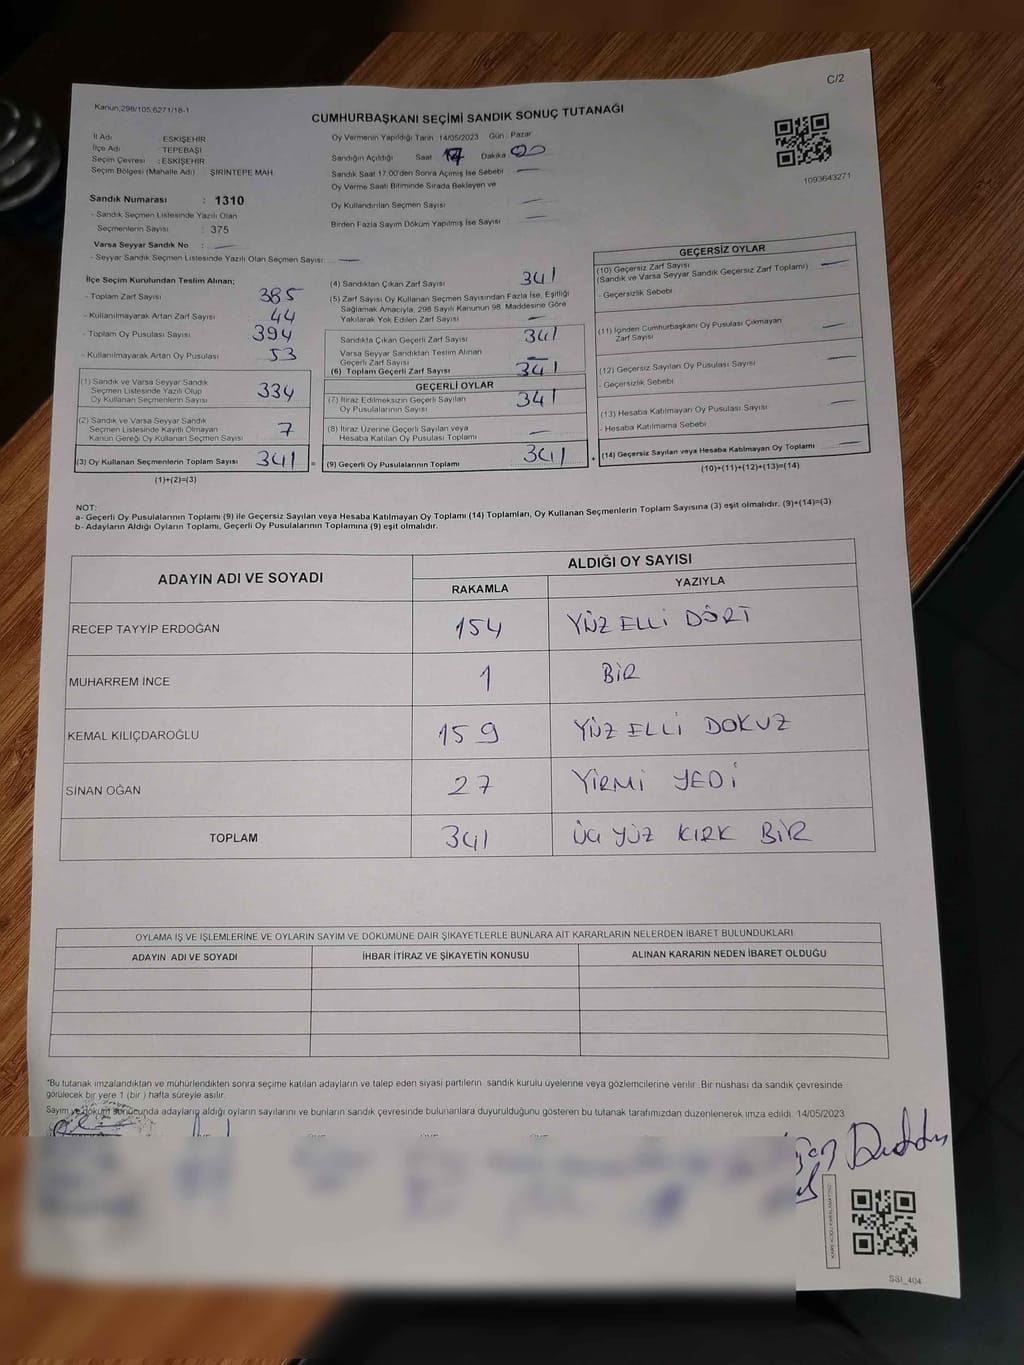 C/2
Kanun;298/105,6271/18-1
CUMHURBAŞKANI SEÇİMİ SANDIK SONUÇ TUTANAĞI
İl Adı ESKİŞEHİR
İlçe Adı : TEPEBAŞI
Seçim Çevresi : ESKİŞEHİR
Seçim Bölgesi (Mahalle Adı) ŞİRİNTEPE MAH.
Oy Vermenin Yapıldığı Tarih 14/05/2023 Gün : Pazar
Sandığın Açıldığı Saat 17 Dakika 00
Sandık Saat 17:00'den Sonra Açılmış İse Sebebi —
Oy Verme Saati Bitiminde Sırada Bekleyen ve
Oy Kullandırılan Seçmen Sayısı —
Birden Fazla Sayım Döküm Yapılmış İse Sayısı —
1093643271
Sandık Numarası : 1310
- Sandık Seçmen Listesinde Yazılı Olan
Seçmenlerin Sayısı : 375
Varsa Seyyar Sandık No : —
- Seyyar Sandık Seçmen Listesinde Yazılı Olan Seçmen Sayısı : —
İlçe Seçim Kurulundan Teslim Alınan;
- Toplam Zarf Sayısı 385
- Kullanılmayarak Artan Zarf Sayısı 44
- Toplam Oy Pusulası Sayısı 394
- Kullanılmayarak Artan Oy Pusulası 53
(1) Sandık ve Varsa Seyyar Sandık
Seçmen Listesinde Yazılı Olup
Oy Kullanan Seçmenlerin Sayısı 334
(2) Sandık ve Varsa Seyyar Sandık
Seçmen Listesinde Kayıtlı Olmayan
Kanun Gereği Oy Kullanan Seçmen Sayısı 7
(3) Oy Kullanan Seçmenlerin Toplam Sayısı 341 =
(1)+(2)=(3)
(4) Sandıktan Çıkan Zarf Sayısı 341
(5) Zarf Sayısı Oy Kullanan Seçmen Sayısından Fazla İse, Eşitliği
Sağlamak Amacıyla, 298 Sayılı Kanunun 98. Maddesine Göre
Yakılarak Yok Edilen Zarf Sayısı —
Sandıkta Çıkan Geçerli Zarf Sayısı 341
Varsa Seyyar Sandıktan Teslim Alınan
Geçerli Zarf Sayısı —
(6) Toplam Geçerli Zarf Sayısı 341
GEÇERLİ OYLAR
(7) İtiraz Edilmeksizin Geçerli Sayılan
Oy Pusulalarının Sayısı 341
(8) İtiraz Üzerine Geçerli Sayılan veya
Hesaba Katılan Oy Pusulası Toplamı —
(9) Geçerli Oy Pusulalarının Toplamı 341 +
GEÇERSİZ OYLAR
(10) Geçersiz Zarf Sayısı —
(Sandık ve Varsa Seyyar Sandık Geçersiz Zarf Toplamı)
- Geçersizlik Sebebi
(11) İçinden Cumhurbaşkanı Oy Pusulası Çıkmayan
Zarf Sayısı —
(12) Geçersiz Sayılan Oy Pusulası Sayısı —
- Geçersizlik Sebebi
(13) Hesaba Katılmayan Oy Pusulası Sayısı —
- Hesaba Katılmama Sebebi
(14) Geçersiz Sayılan veya Hesaba Katılmayan Oy Toplamı —
(10)+(11)+(12)+(13)=(14)
NOT:
a- Geçerli Oy Pusulalarının Toplamı (9) ile Geçersiz Sayılan veya Hesaba Katılmayan Oy Toplamı (14) Toplamları, Oy Kullanan Seçmenlerin Toplam Sayısına (3) eşit olmalıdır. (9)+(14)=(3)
b- Adayların Aldığı Oyların Toplamı, Geçerli Oy Pusulalarının Toplamına (9) eşit olmalıdır.
ADAYIN ADI VE SOYADI ALDIĞI OY SAYISI
RAKAMLA YAZIYLA
RECEP TAYYİP ERDOĞAN 154 YÜZ ELLİ DÖRT
MUHARREM İNCE 1 BİR
KEMAL KILIÇDAROĞLU 159 YÜZ ELLİ DOKUZ
SİNAN OĞAN 27 YİRMİ YEDİ
TOPLAM 341 ÜÇ YÜZ KIRK BİR
OYLAMA İŞ VE İŞLEMLERİNE VE OYLARIN SAYIM VE DÖKÜMÜNE DAİR ŞİKAYETLERLE BUNLARA AİT KARARLARIN NELERDEN İBARET BULUNDUKLARI
ADAYIN ADI VE SOYADI İHBAR İTİRAZ VE ŞİKAYETİN KONUSU ALINAN KARARIN NEDEN İBARET OLDUĞU
*Bu tutanak imzalandıktan ve mühürlendikten sonra seçime katılan adayların ve talep eden siyasi partilerin sandık kurulu üyelerine veya gözlemcilerine verilir. Bir nüshası da sandık çevresinde
görülecek bir yere 1 (bir) hafta süreyle asılır.
Sayım ve döküm sonucunda adayların aldığı oyların sayılarını ve bunların sandık çevresinde bulunanlara duyurulduğunu gösteren bu tutanak tarafımızdan düzenlenerek imza edildi. 14/05/2023
SSI_404